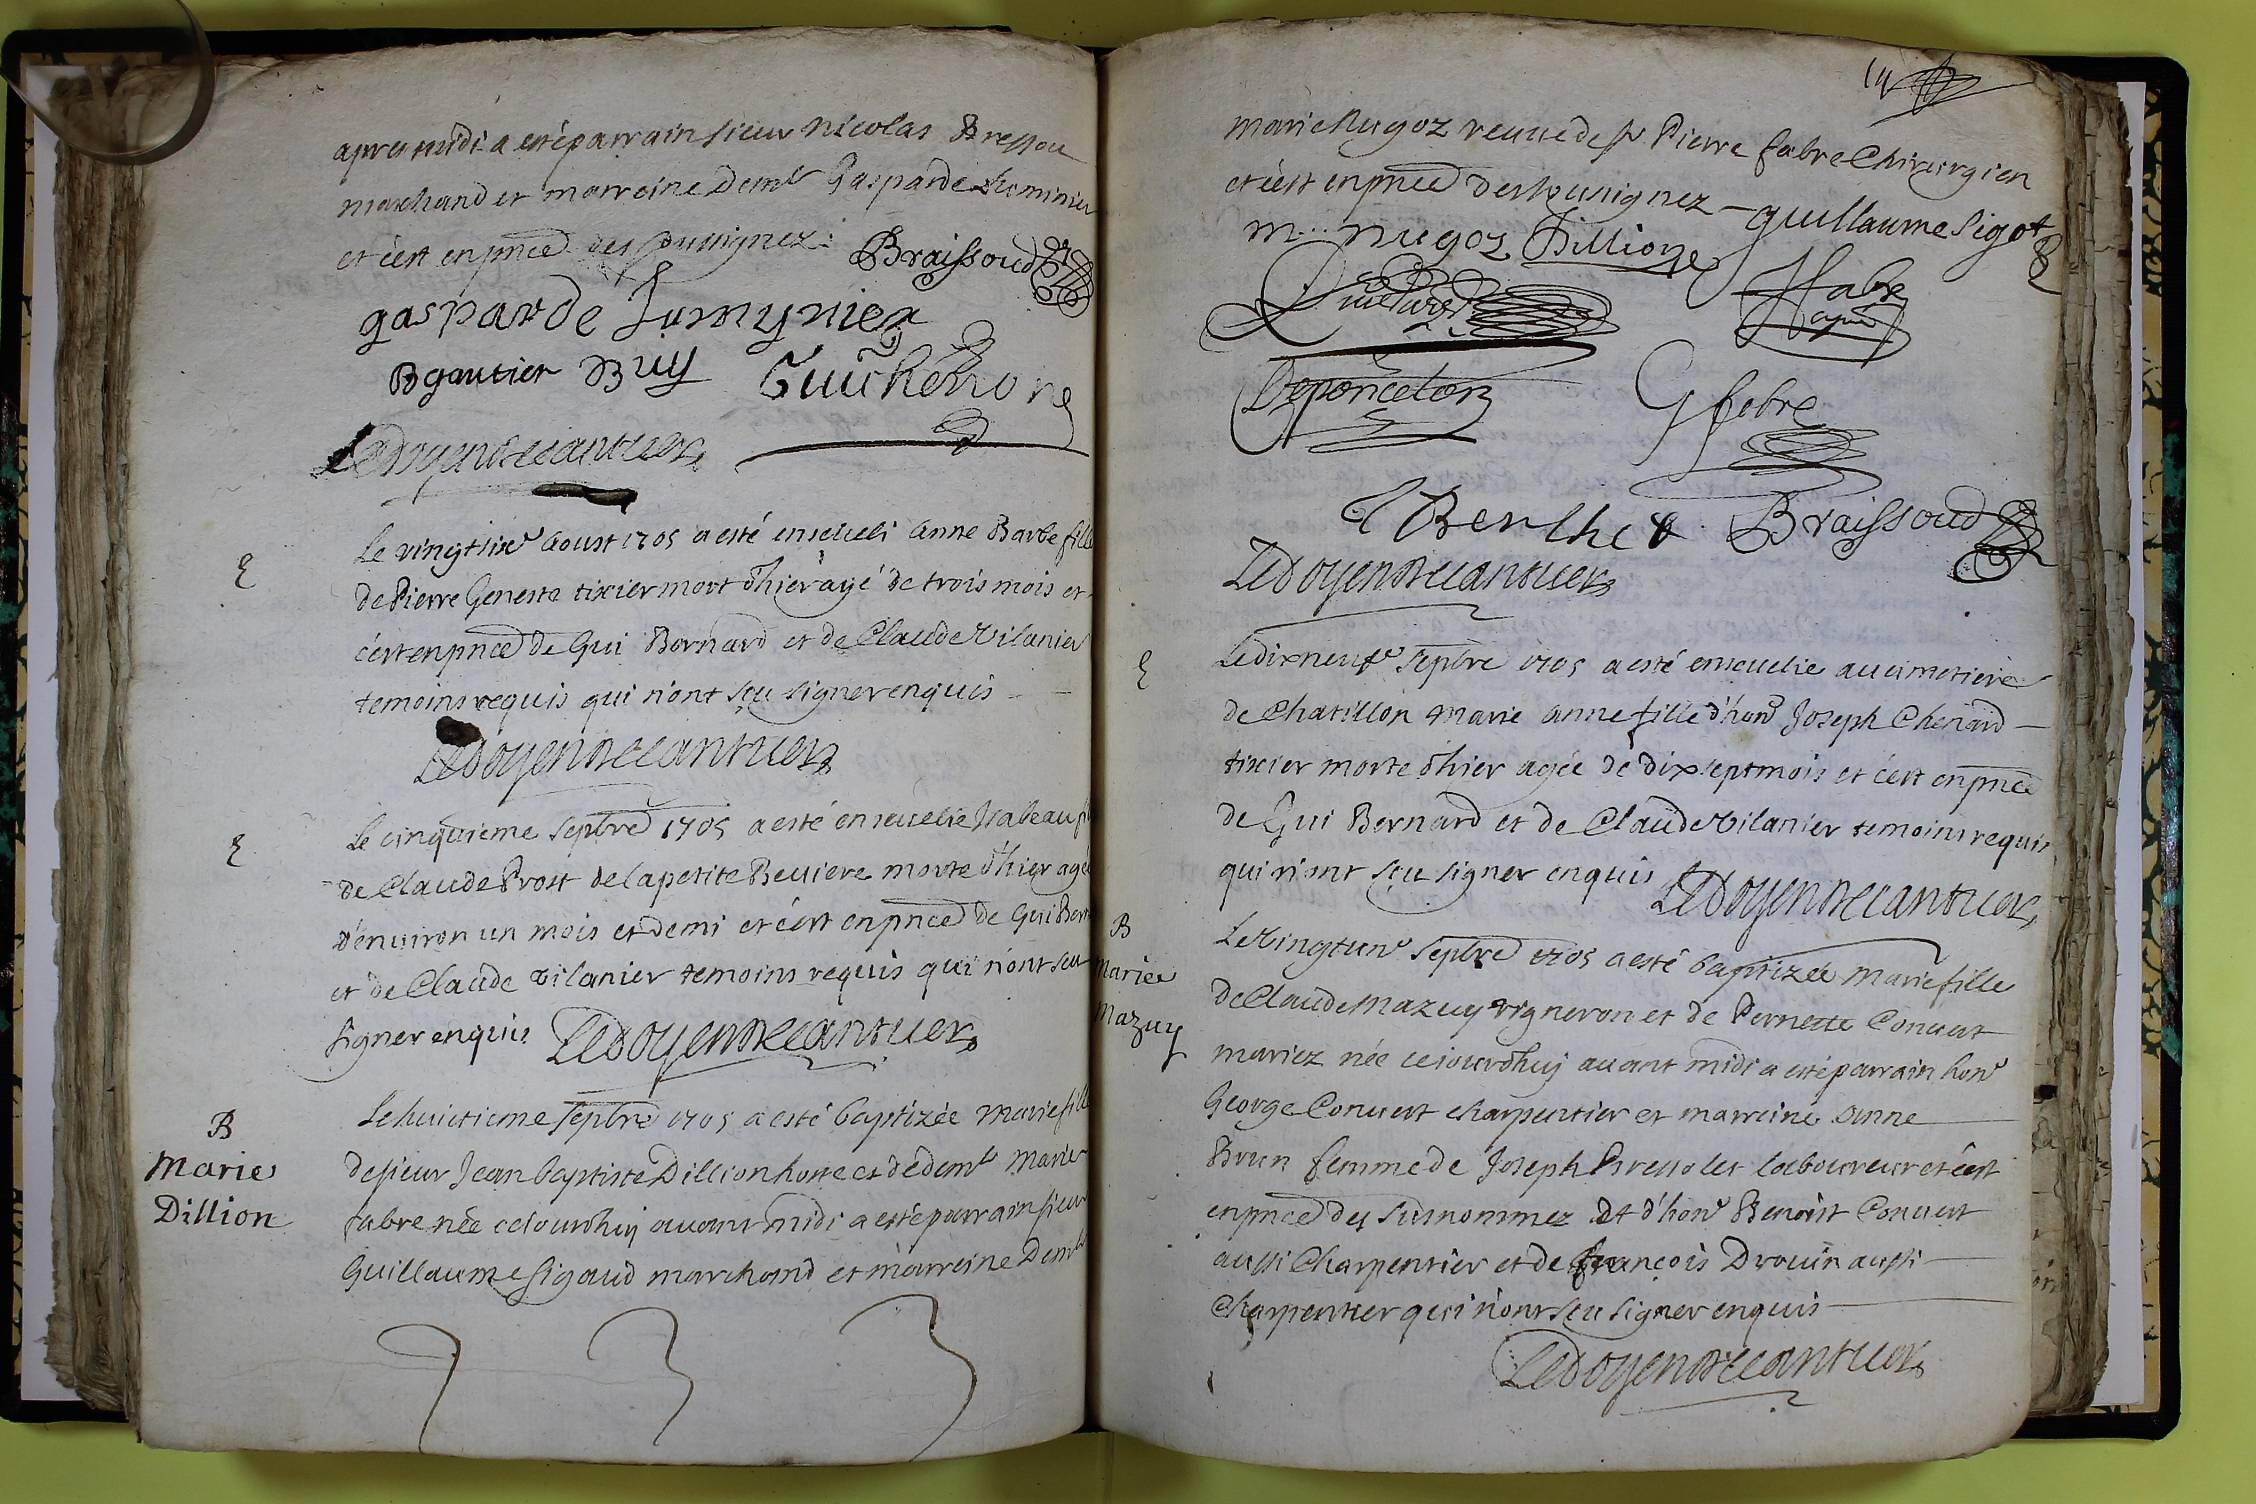 apres midi a esté parrain sieur Nicolas Bressou
marchand et marreine Dem.lle Gasparde Juminier
et c'est en pnce des soussignez:
Braissoud
gasparde Jumynier
B gautier Buy Guicherrore
Ledoyen &
E
Le vingtsixe Aoust 1705 a esté enseveli Anne Barbe fille
de Pierre Geneste tixier mort d'hier agé de trois mois et
c'est en pnce de Gui Bernard et de Claude Vilanier
temoins requis qui n'ont sçu signer enquis
Ledoyen &
E
Le cinquieme septbre 1705 a esté ensevelie Isabeau
de Claude Prost de la petite Beviere morte d'hier agée
d'environ un mois et demi et c'est en pnce de Gui
et de Claude vilanier temoins requis qui n'ont sçu
signer enquis Ledoyen &
B
Marie
Dillion
Le huictieme septbre 1705 a esté baptizée Marie fille
de sieur Jean baptiste Dillion hoste et de dem.lle Marie
fabre née cejourdhuy avant midi a esté parrain sieur
Guillaume Sigaud marchand et marreine Dem.lle
Marie Nugoz veuve de sr Pierre fabre Chirurgien
et c'est en pnce des soussignez — guillaume Sigot
m. nugoz Dillion
fabre
Deponceton
G fabre
Berthet Braissoud
Ledoyen &
E
Le dixneufe septbre 1705 a esté ensevelie au cimetiere
de Chatillon Marie Anne fille d'hone Joseph Chenard
tixier morte d'hier agée de dix sept mois et c'est en pnce
de Gui Bernard et de Claude Vilanier temoins requis
qui n'ont sçu signer enquis Ledoyen &
B
Marie
Mazuy
Le Vingtune septbre 1705 a esté baptizée Marie fille
de Claude Mazuy vigneron et de Pernette Convert
mariez née cejourdhuy avant midi a esté parrain hone
George Convert charpentier et marreine Anne
Brun femme de Joseph laboureur et c'est
en pnce des susnommez et d'hone Benoist Convert
aussi Charpentier et de françois Drouin aussi
Charpentier qui n'ont sçu signer enquis
Ledoyen &